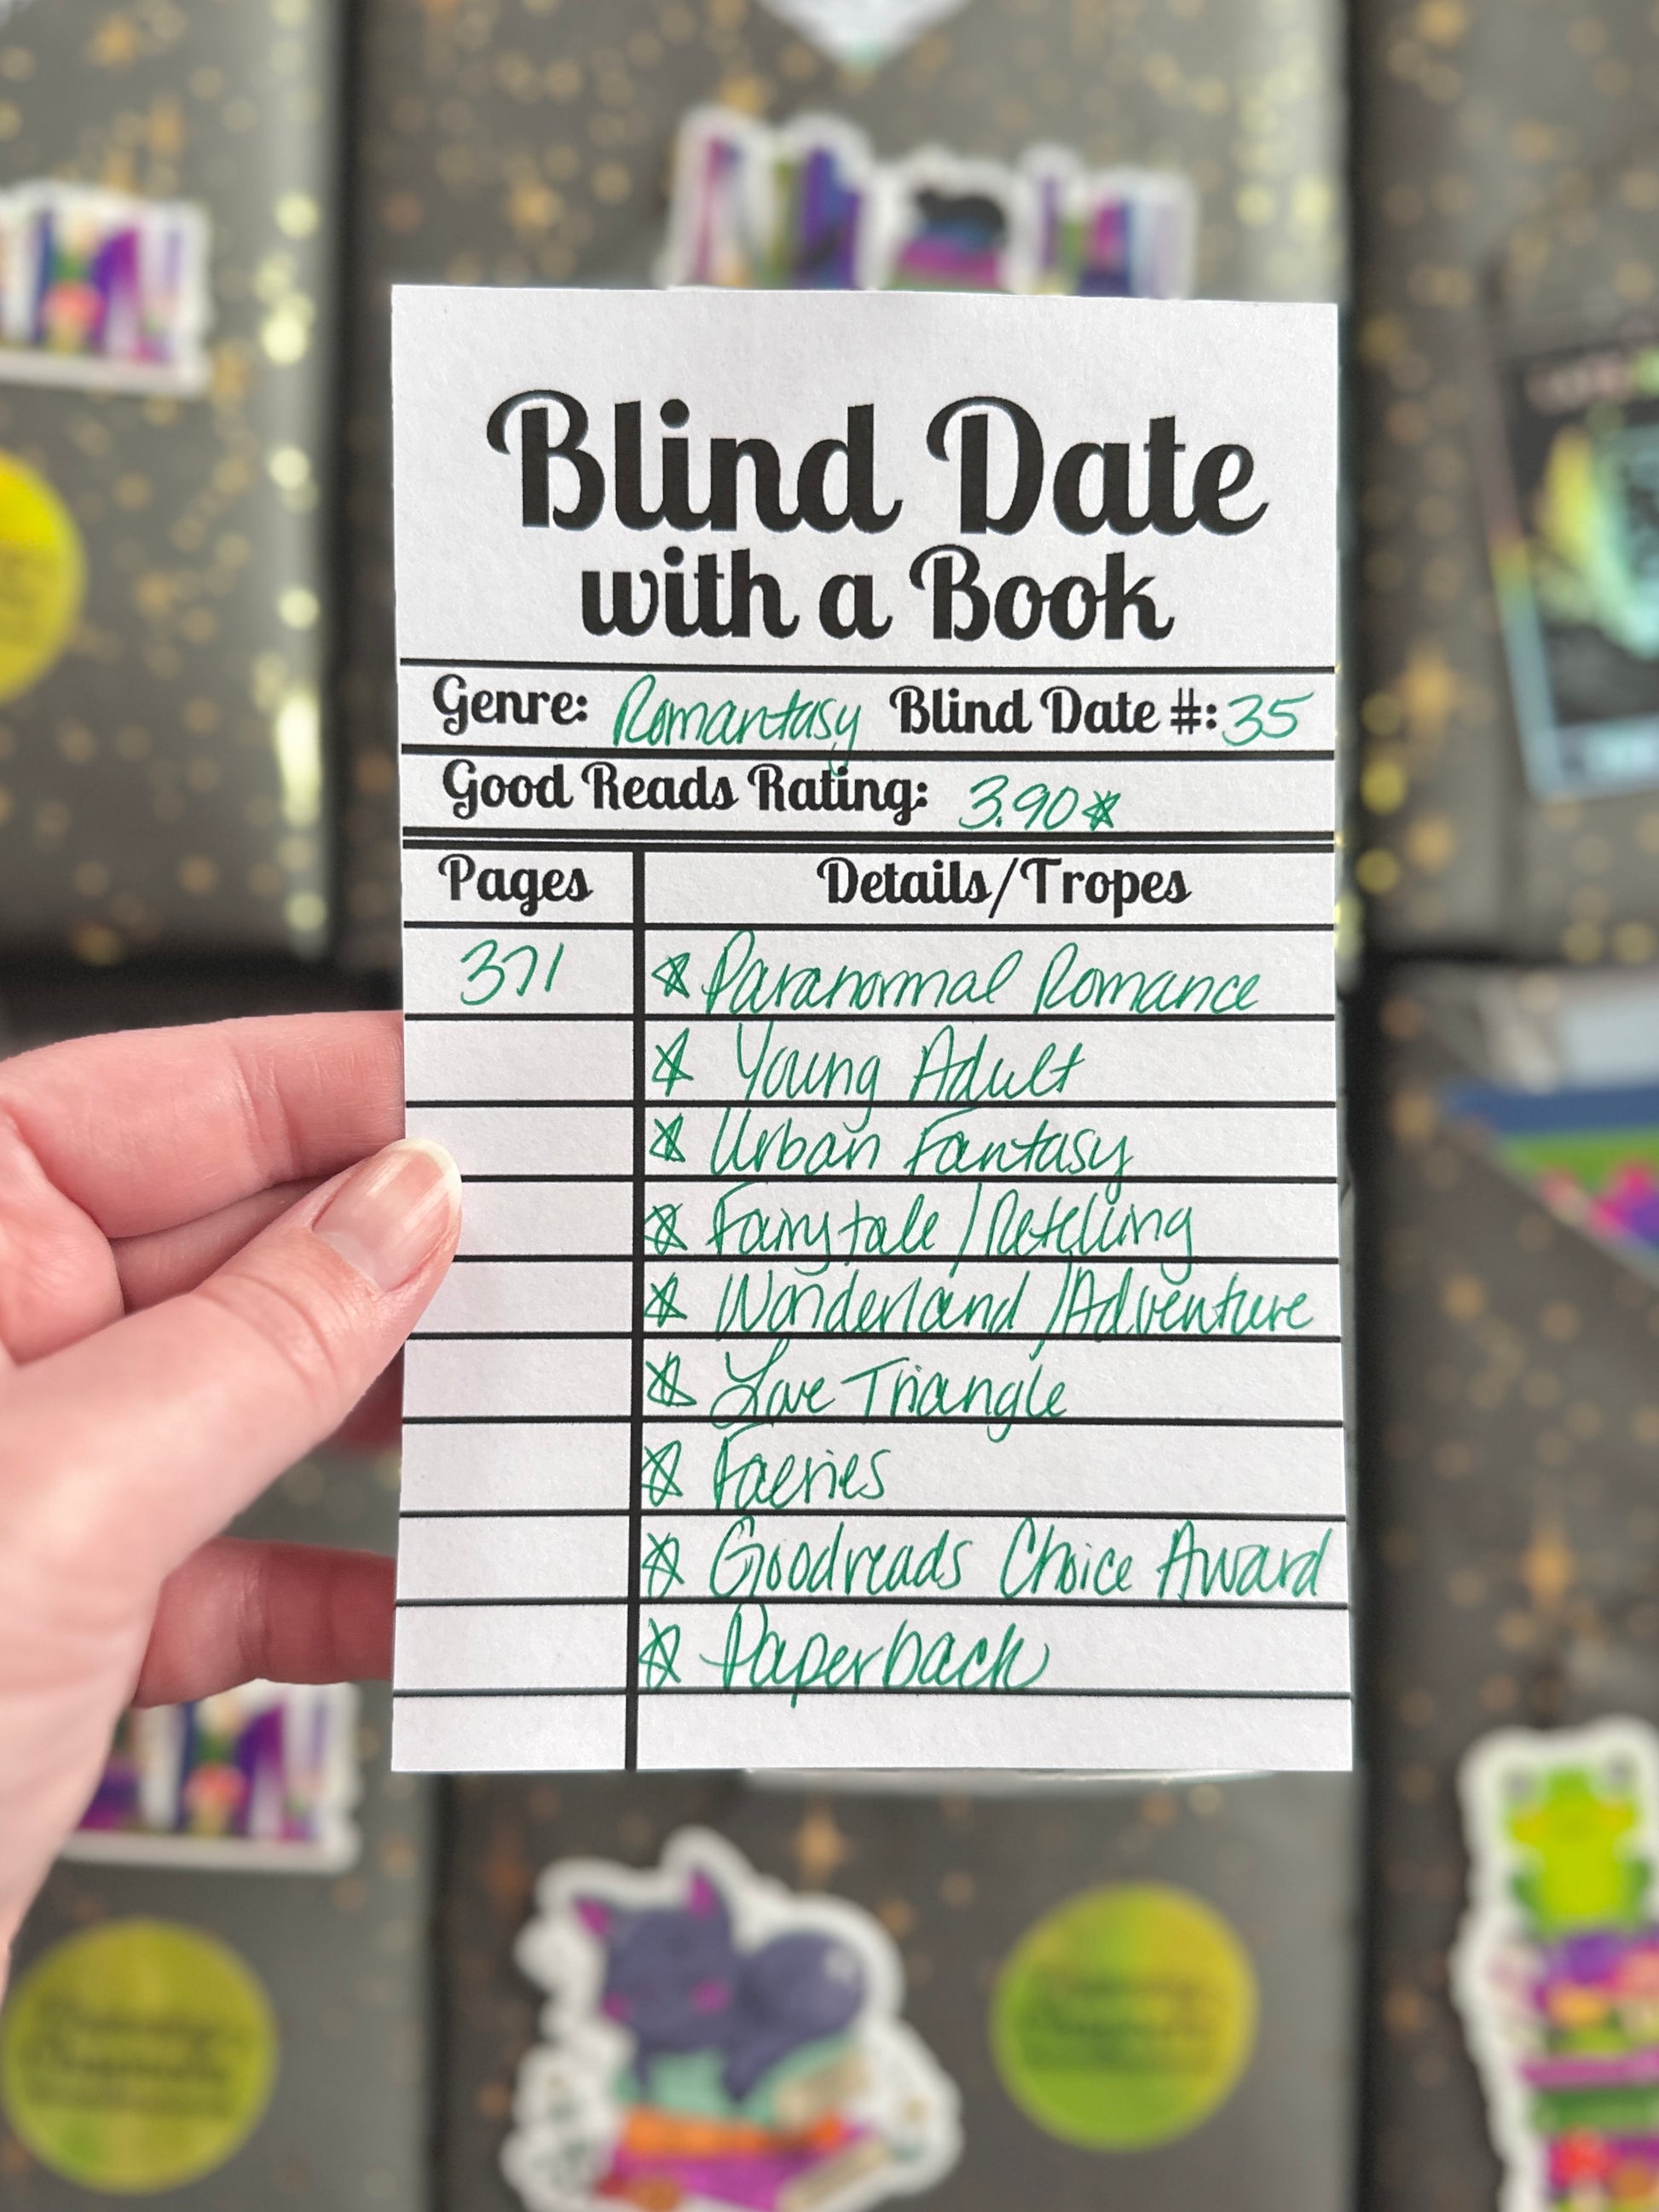 Blind Date
with a Book
Genre: Romantasy Blind Date #: 35
Good Reads Rating: 3.90☆
Pages Details/Tropes
371 ☆ Paranormal Romance
☆ Young Adult
☆ Urban Fantasy
☆ Fairytale/Retelling
☆ Wonderland/Adventure
☆ Love Triangle
☆ Faeries
☆ Goodreads Choice Award
☆ Paperback